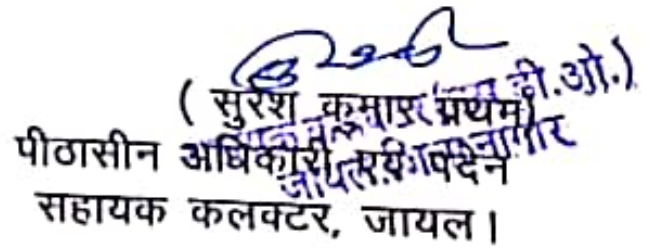 ( सुरेश कुमार प्रथम)
पीठासीन अधिकारी एवं पदेन
सहायक कलक्टर, जायल।
डी.ओ.)
जायल
नागौर